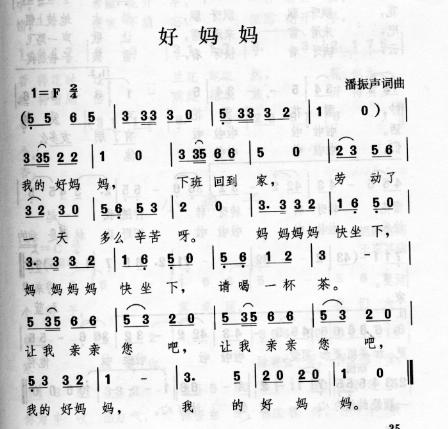 好妈妈
1=F 2/4
潘振声词曲
(5 5 6 5 | 3 33 3 0 | 5 5 3 3 2 | 1 0 )|
3 35 2 2 | 1 0 | 3 35 6 6 | 5 0 | 2 3 5 6 |
我的 好妈 妈, 下班 回到 家, 劳 动了
3 2 3 0 | 5 6 5 3 | 2 0 | 3. 3 3 2 | 1 6 5 0 |
一 天 多么 辛苦 呀。 妈 妈妈妈 快坐 下,
3. 3 3 2 | 1 6 5 0 | 5 6 1 2 | 3 - |
妈 妈妈妈 快坐 下, 请喝 一杯 茶。
5 35 6 6 | 5 3 5 0 | 5 35 6 6 | 5 3 5 0 |
让我 亲亲 您 吧, 让我 亲亲 您 吧,
5 3 3 2 | 1 - | 3. 5 | 2 0 2 0 | 1 0 ‖
我的 好妈 妈, 我 的 好 妈 妈。
35